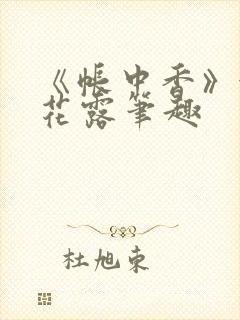 《帐中香》
花露笔趣
杜旭东